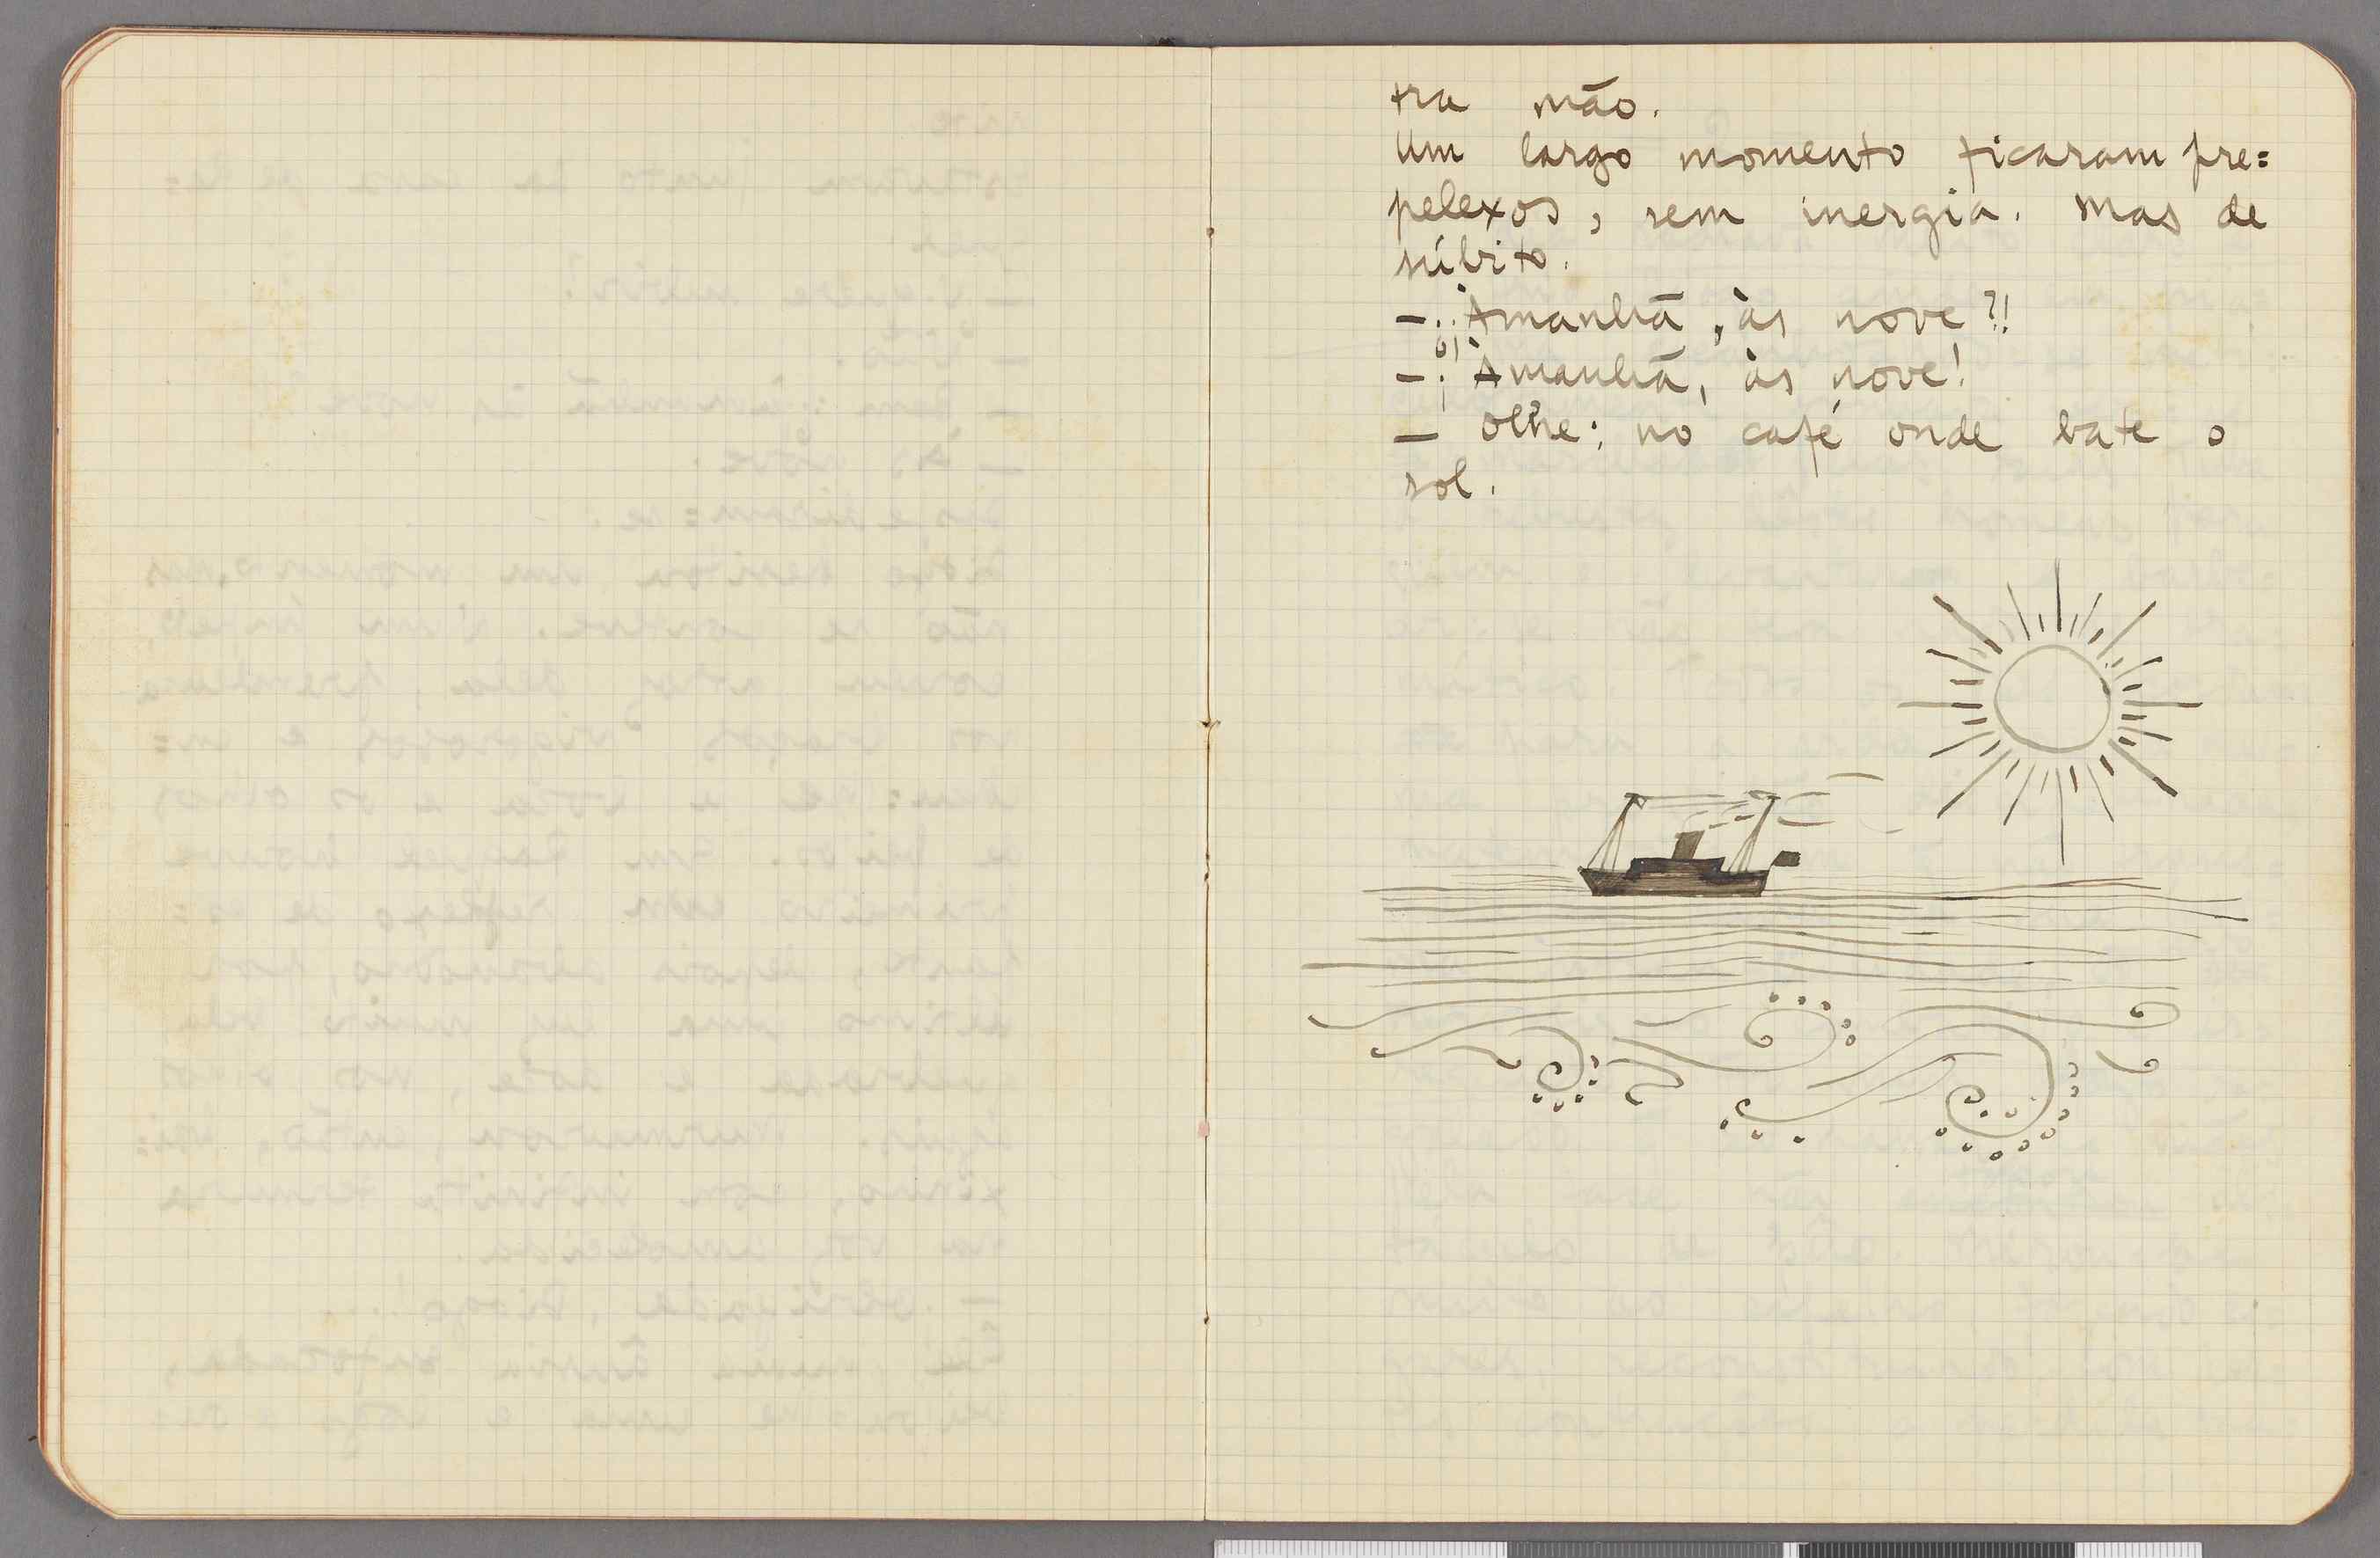 tra mão.
Um largo momento ficaram pre=
pelexos, sem inergia. Mas de
súbito.
— ¿Àmanhã, às nove?!
— ¡Àmanhã, às nove!
— Olhe: no café onde bate o
sol.